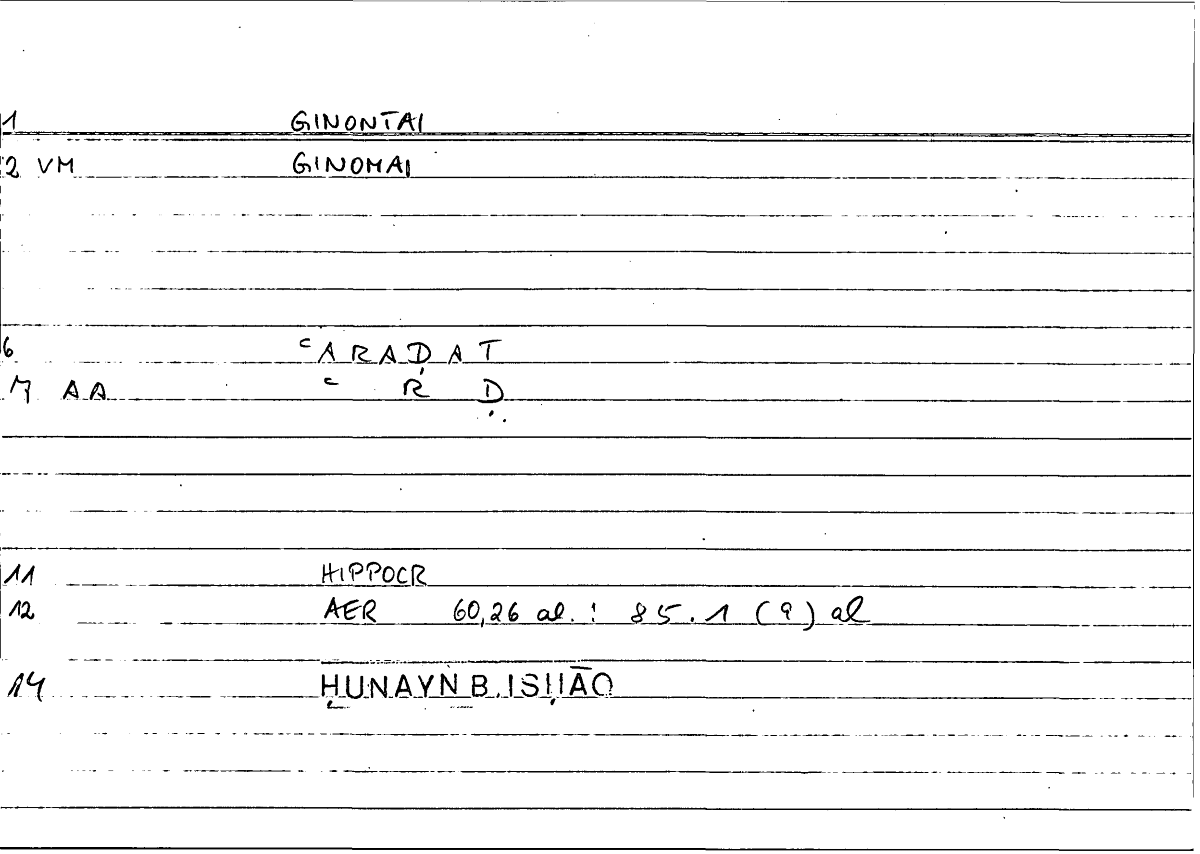 1 GINONTAI
2 VM GINOMAI
6 ʿARAḌAT
7 AA ʿ R Ḍ
11 HIPPOCR
12 AER 60,26 al. : 85.1 (9) al
14 ḤUNAYN B. ISḤĀQ